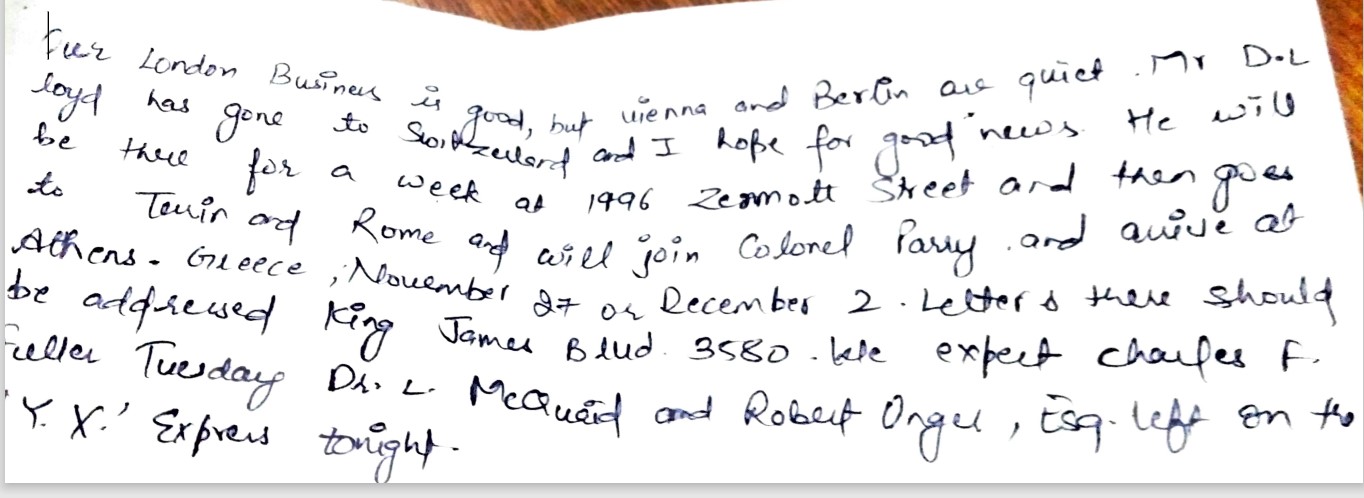 Our London Business is good, but vienna and Berlin are quiet. Mr D.L
loyd has gone to Switzerland and I hope for good news. He will
be there for a week at 1996 Zermott Street and then goes
to Turin and Rome and will join Colonel Parry and arrive at
Athens. Greece, November 27 or December 2. Letters there should
be addressed King James Blvd. 3580. We expect Charles F.
Fuller Tuesday Dr. L. McQuaid and Robert Unger, Esq. left on the
'Y. X.' Express tonight.